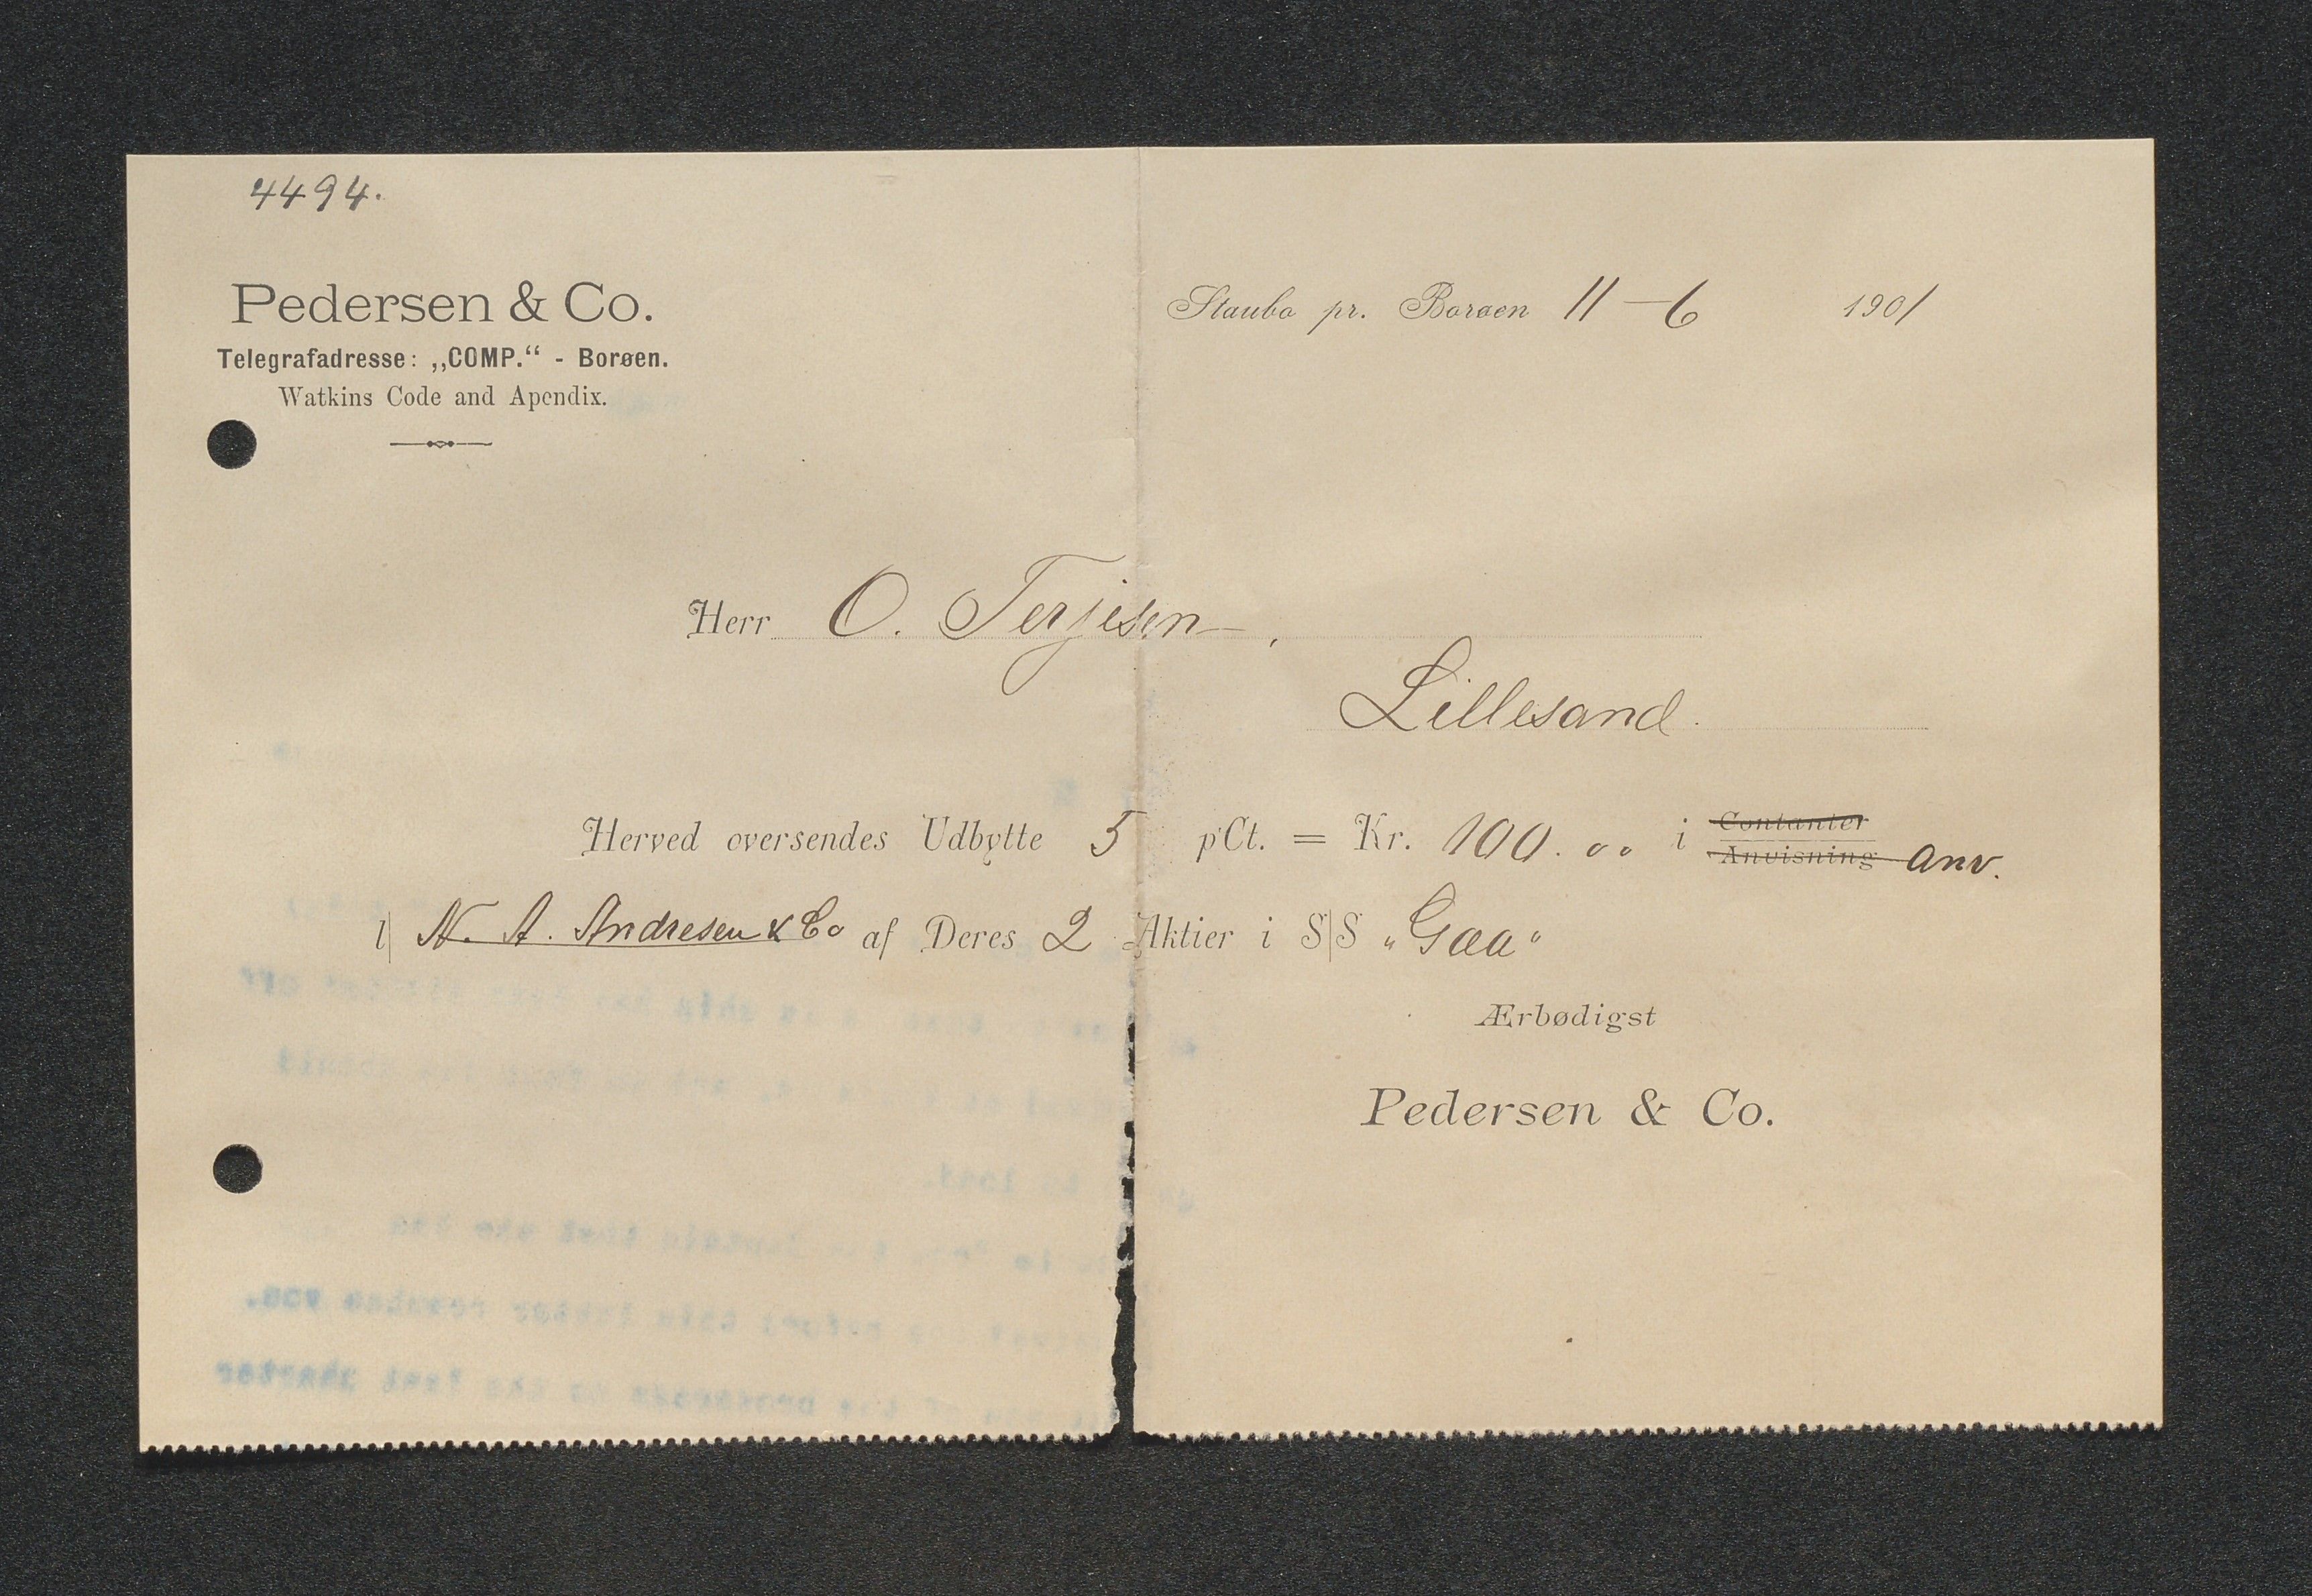 4494.
Pedersen & Co.
Telegrafadresse: „COMP.“ - Borøen.
Watkins Code and Apendix.
Staubo pr. Borøen 11-6 1901
Herr O. Terjesen.
Lillesand.
Herved oversendes Udbytte 5 pCt. = Kr. 100.00 i Contanter
Anvisning anv.
N. A. Andresen & Co af Deres 2 Aktier i S|S „Gaa“
Ærbødigst
Pedersen & Co.